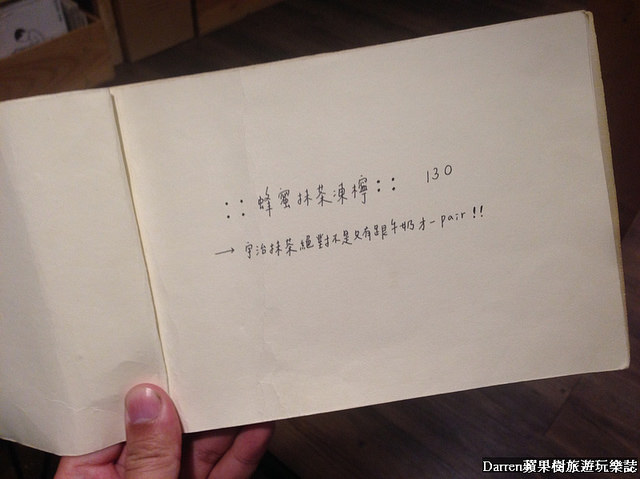 :: 蜂蜜抹茶凍檸 :: 130
→ 宇治抹茶絕對不是只有跟牛奶才一pair!!
Darren蘋果樹旅遊玩樂誌